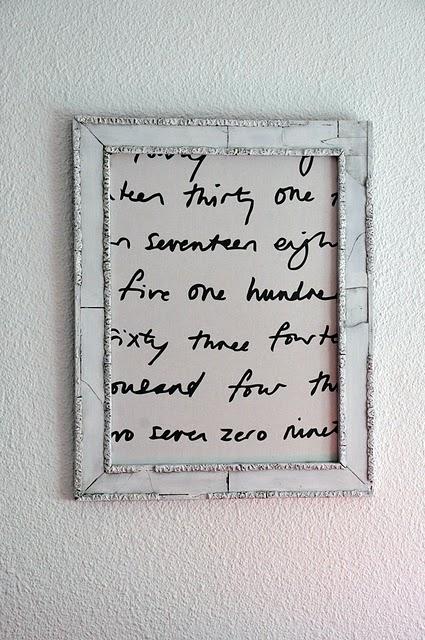 teen thirty one
n seventeen eigh
five one hundre
sixty three fourte
ousand four th
wo seven zero ninet